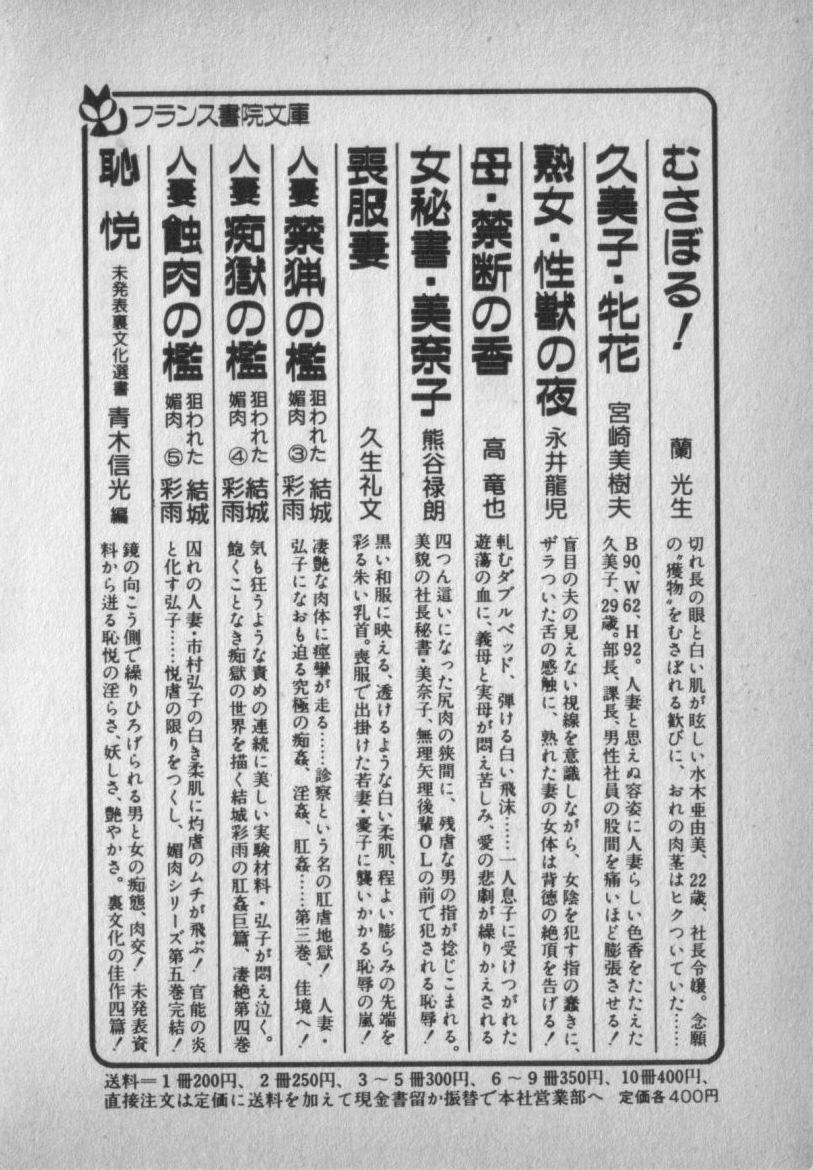 フランス書院文庫
むさぼる！
蘭光生
切れ長の眼と白い肌が眩しい水木亜由美、22歳、社長令嬢。念願
の〝獲物〟をむさぼれる歓びに、おれの肉茎はヒクついていた……
久美子・牝花
宮崎美樹夫
B90、W62、H92。人妻と思えぬ容姿に人妻らしい色香をたたえた
久美子、29歳。部長、課長、男性社員の股間を痛いほど膨張させる！
熟女・性獣の夜
永井龍児
盲目の夫の見えない視線を意識しながら、女陰を犯す指の蠢きに、
ザラついた舌の感触に、熟れた妻の女体は背徳の絶頂を告げる！
母・禁断の香
高竜也
軋むダブルベッド、弾ける白い飛沫……一人息子に受けつがれた
遊蕩の血に、義母と実母が悶え苦しみ、愛の悲劇が繰りかえされる
女秘書・美奈子
熊谷禄朗
四つん這いになった尻肉の狭間に、残虐な男の指が捻じこまれる。
美貌の社長秘書・美奈子、無理矢理後輩OLの前で犯される恥辱！
喪服妻
久生礼文
黒い和服に映える、透けるような白い柔肌、程よい膨らみの先端を
彩る朱い乳首。喪服で出掛けた若妻・憂子に襲いかかる恥辱の嵐！
人妻 禁猟の檻
狙われた
媚肉 ③
結城
彩雨
凄艶な肉体に痙攣が走る……診察という名の肛虐地獄！ 人妻・
弘子になおも迫る究極の痴姦、淫姦、肛姦……第三巻、佳境へ！
人妻 痴獄の檻
狙われた
媚肉 ④
結城
彩雨
気も狂うような責めの連続に美しい実験材料・弘子が悶え泣く。
飽くことなき痴獄の世界を描く結城彩雨の肛姦巨篇、凄絶第四巻
人妻 蝕肉の檻
狙われた
媚肉 ⑤
結城
彩雨
囚れの人妻・市村弘子の白き柔肌に灼虐のムチが飛ぶ！ 官能の炎
と化す弘子……悦虐の限りをつくし、媚肉シリーズ第五巻完結！
恥悦
未発表裏文化選書
青木信光 編
鏡の向こう側で繰りひろげられる男と女の痴態、肉交！ 未発表資
料から迸る恥悦の淫らさ、妖しさ、艶やかさ。裏文化の佳作四篇！
送料＝1冊200円、2冊250円、3～5冊300円、6～9冊350円、10冊400円、
直接注文は定価に送料を加えて現金書留か振替で本社営業部へ 定価各400円